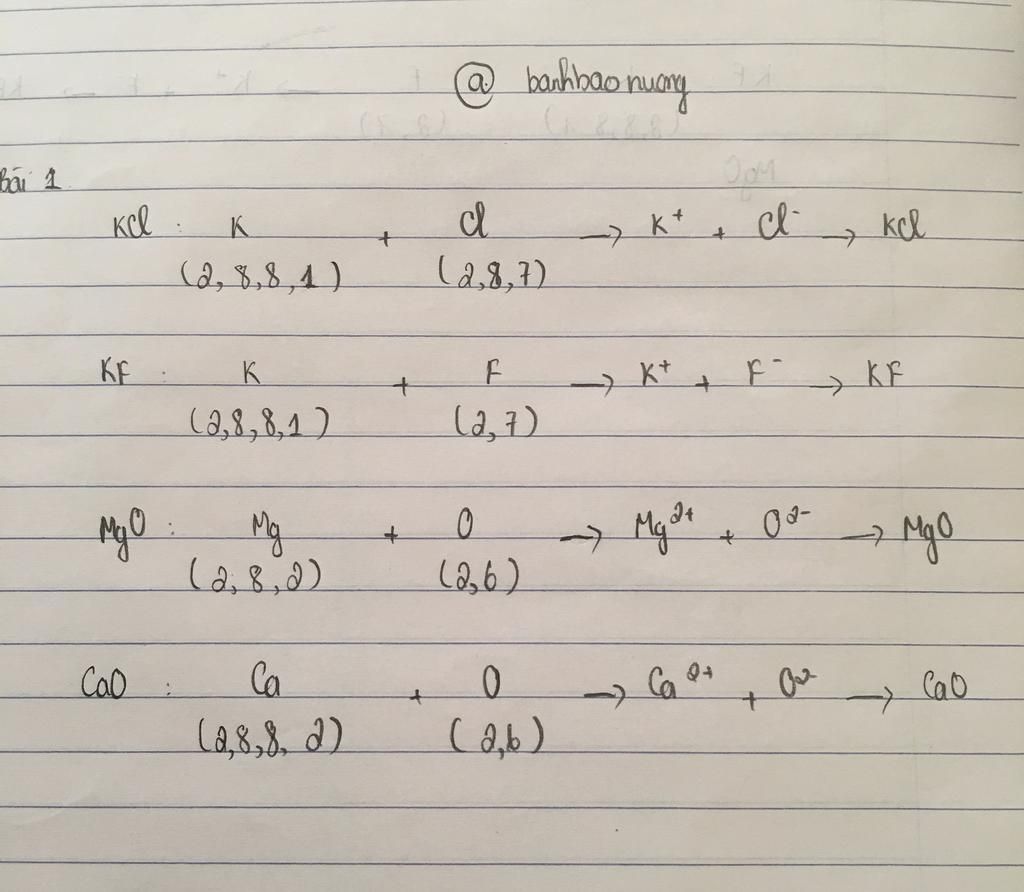 @ banhbaonuong
Bài 1
KCl : K + Cl → K⁺ + Cl⁻ → KCl
(2,8,8,1) (2,8,7)
KF : K + F → K⁺ + F⁻ → KF
(2,8,8,1) (2,7)
MgO : Mg + O → Mg²⁺ + O²⁻ → MgO
(2,8,2) (2,6)
CaO : Ca + O → Ca²⁺ + O²⁻ → CaO
(2,8,8,2) (2,6)